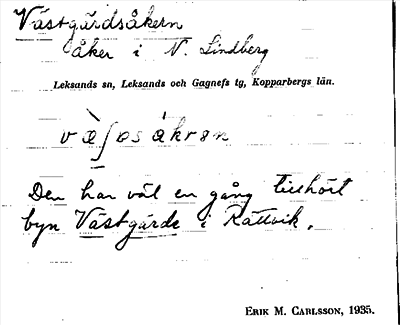 Västgärdsåkern
åker i N. Lindberg
Leksands sn, Leksands och Gagnefs tg, Kopparbergs län.
Den har väl en gång tillhört
byn Västgärde i Rättvik.
ERIK M. CARLSSON, 1935.